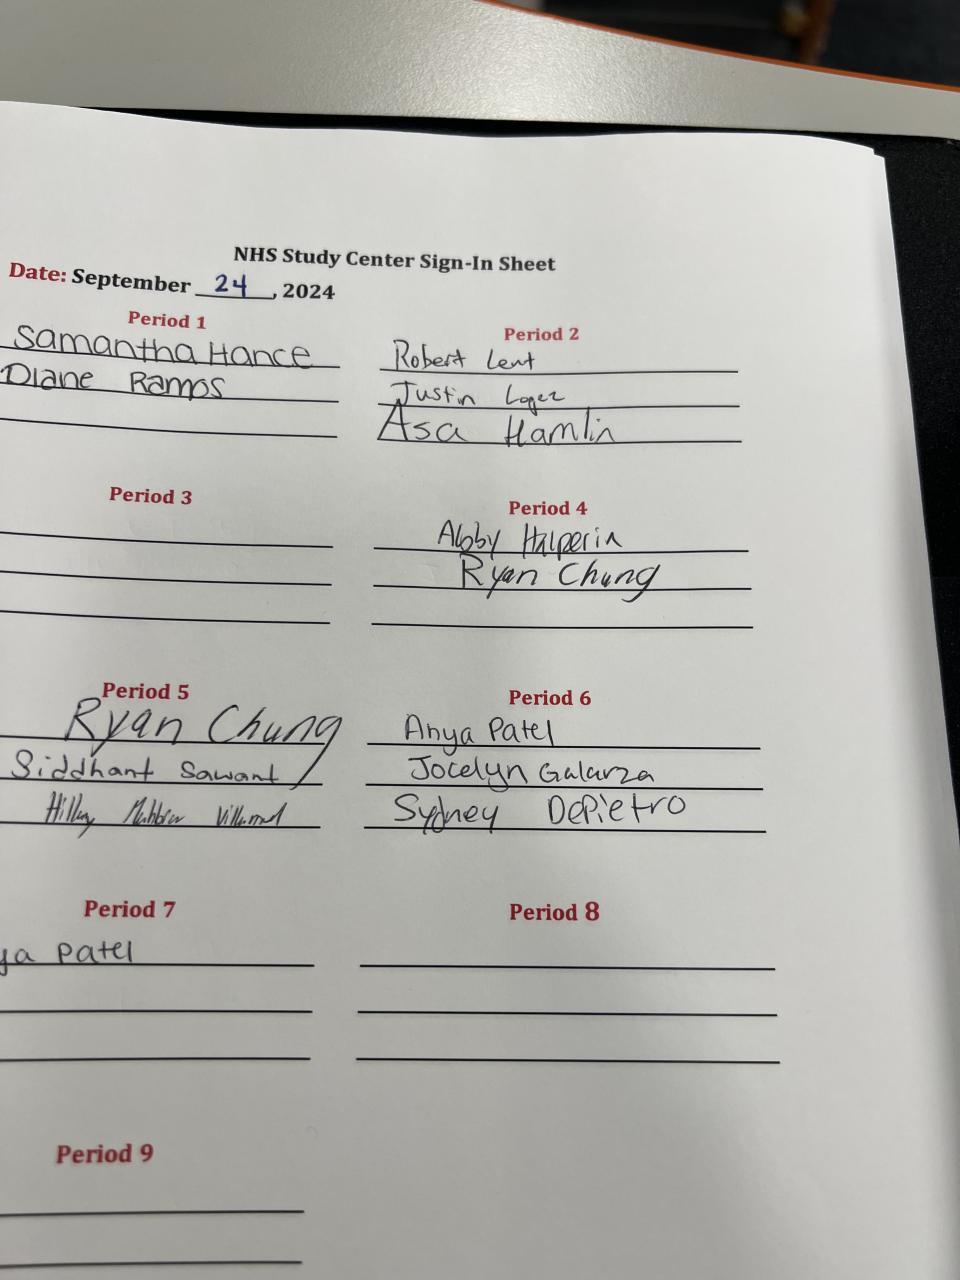 NHS Study Center Sign-In Sheet
Date: September 24, 2024
Period 1
Samantha Hance
Diane Ramos
Period 2
Robert Lent
Justin Logez
Asa Hamlin
Period 3
Period 4
Abby Halperin
Ryan Chung
Period 5
Ryan Chung
Siddhant Sawant
Hillary
Period 6
Anya Patel
Jocelyn Galarza
Sydney DePietro
Period 7
ya Patel
Period 8
Period 9